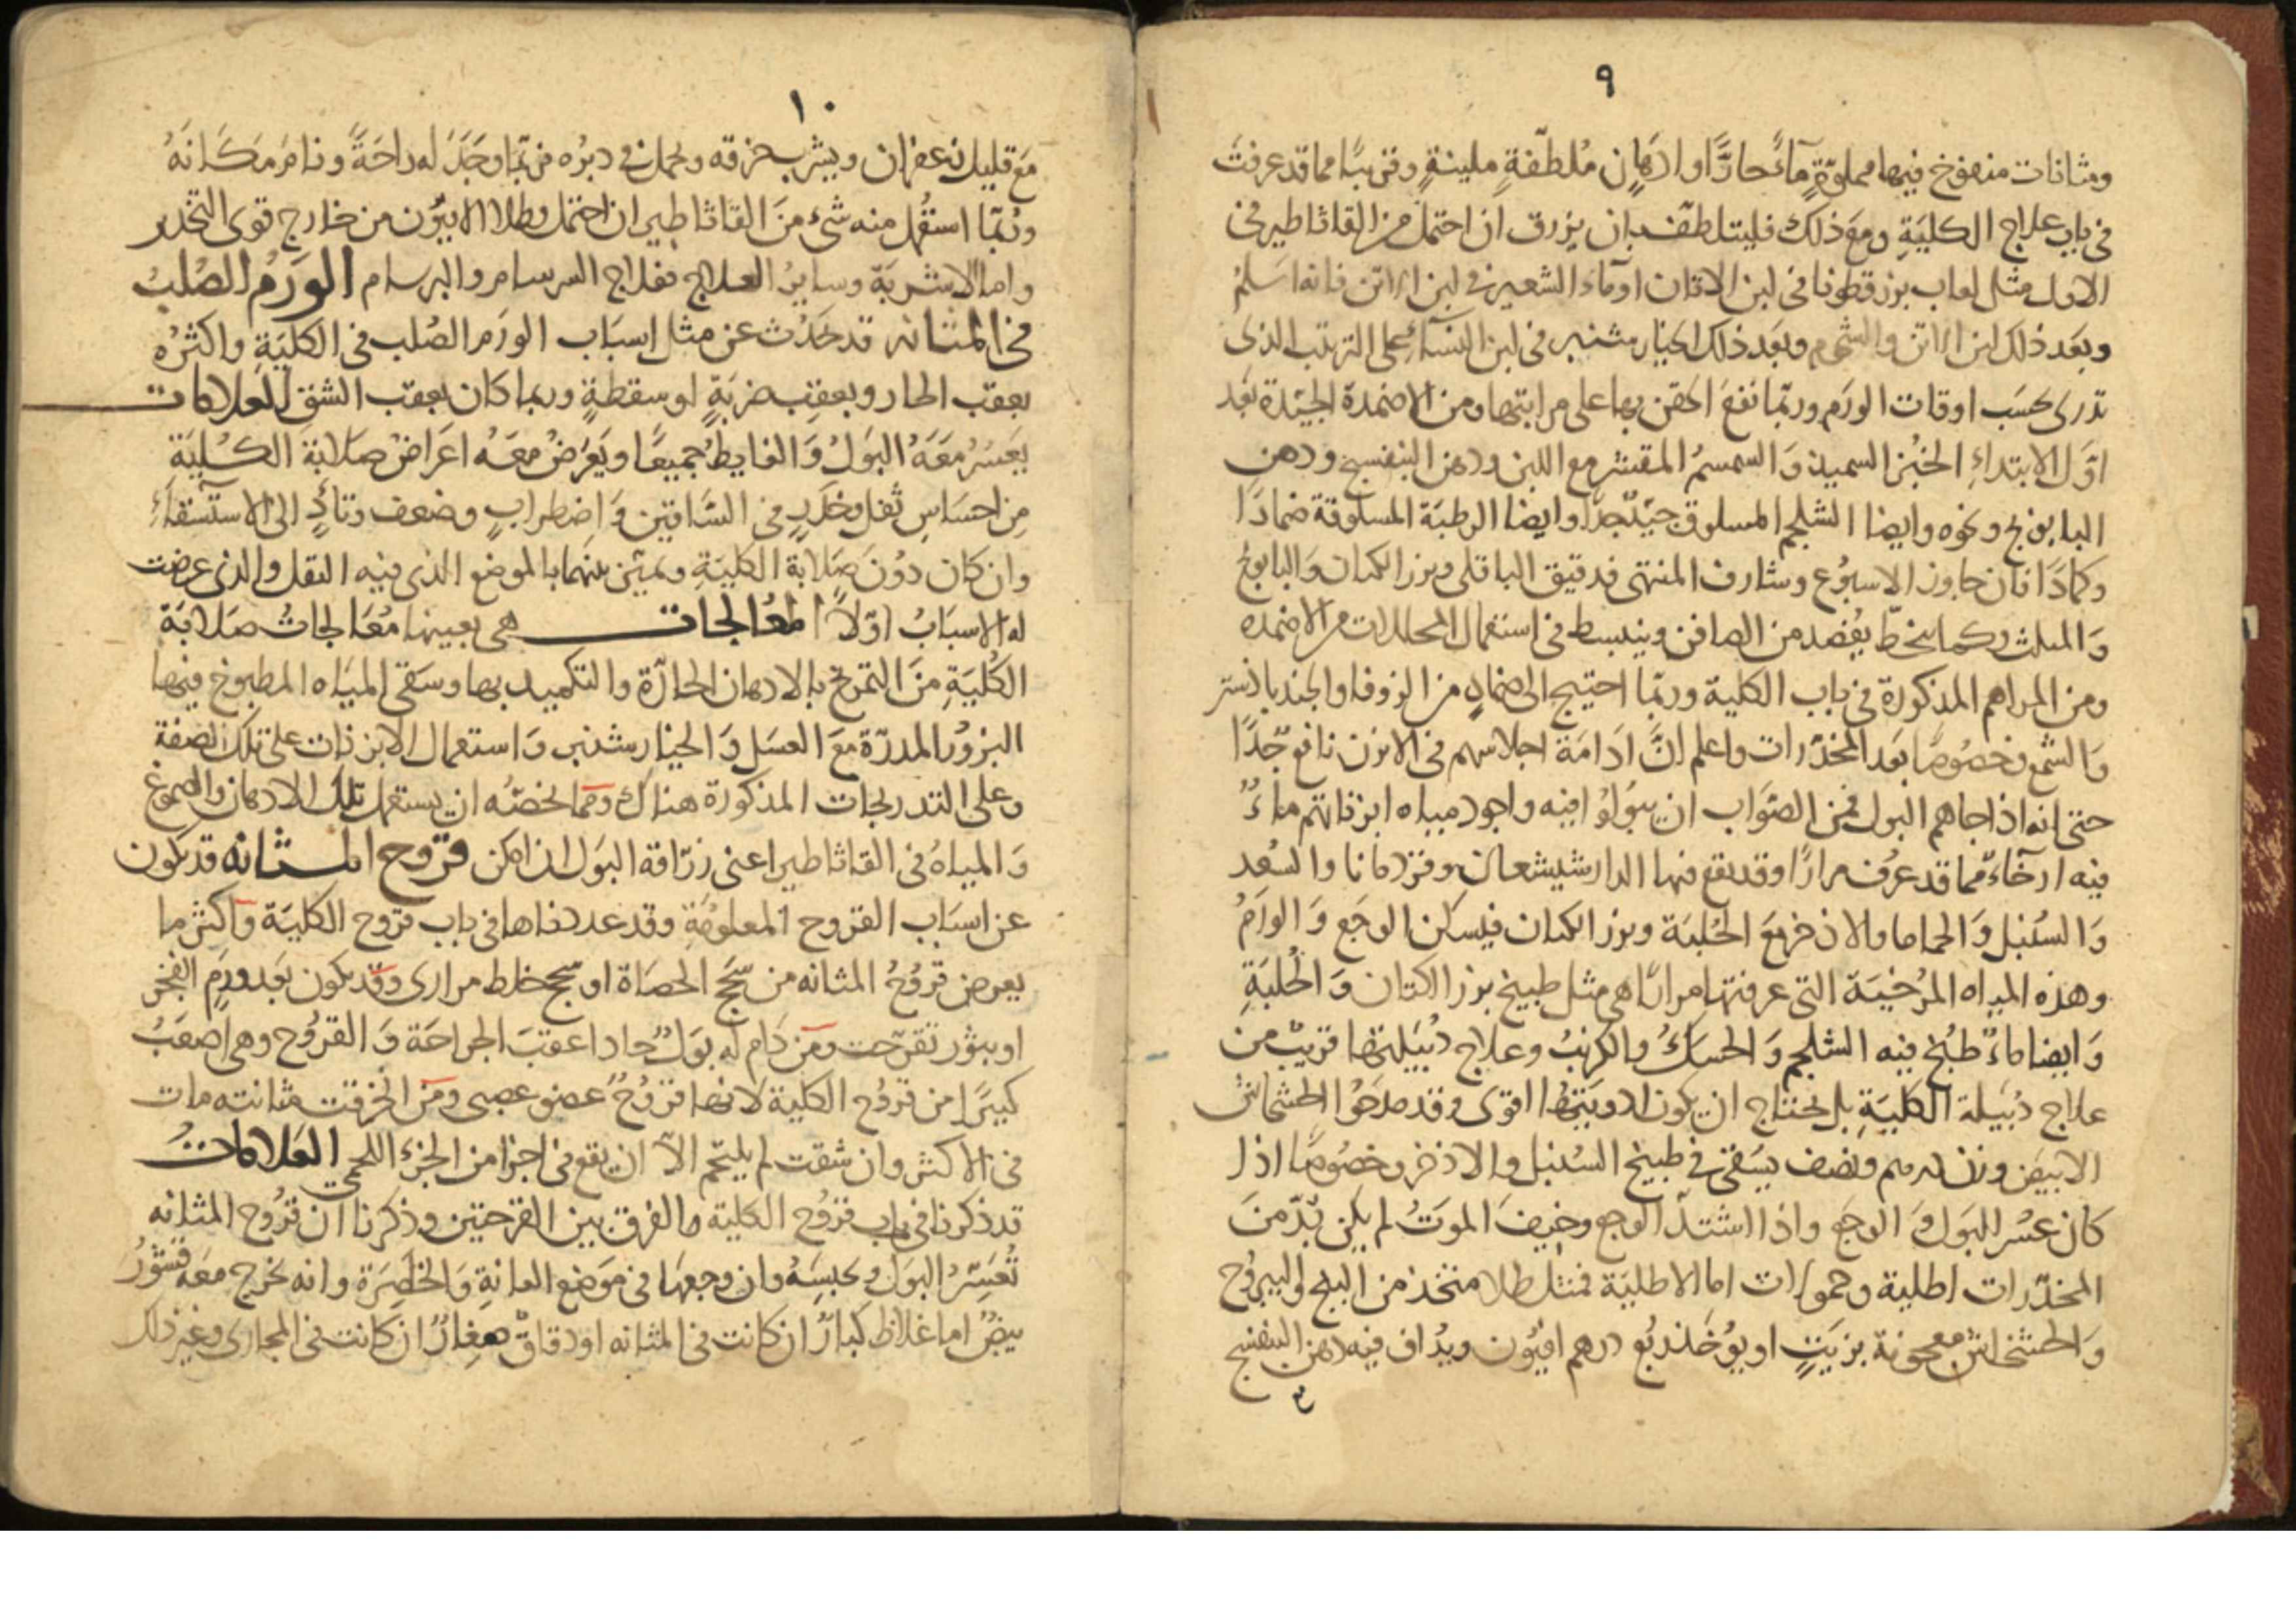 ٩
ومثانات منفوخ فيها مملوّةٍ مآءً حارًّا او ادهانٍ مُلطّفةٍ ملينةٍ وقريبًا مما قد عرفتَ
فى باب علاج الكليَةِ ومعَ ذلك فليتلطّف بان يزرق ان احتمل من القاثاطير فى
الاول مثل لعاب بزر قطونا فى لبن الاتان او مآء الشعير فى لبن الاتن فانه اسَلمُ
وبعَد ذلك لبن الاتن والشحوم وبعَد ذلك الخيار شنبر فى لبن النسَآءِ على الترتيب الذى
تدرى بحسَب اوقات الورَم وربّما نفعَ الحقن بها على مراتبها ومن الاضمدة الجيّدة بعَد
اوّل الابتداءِ الخبُز السميد وَالسمسمُ المقشر مع اللبن ودهن البنفسج ودهن
البابونج ونحوه وايضا الشلجم المسلوق جيّد جدًّا وايضا الرطبَة المسلوقة ضمادَا
وكمادَا فان جاوز الاسبوُع وشارف المنتهى فدقيق الباقلى وبزر الكتان وَالبابونج
وَالمثلث وكما ينحطّ يفُصد من الصافن وينبسط فى استعمال المحللات من الاضمده
ومن المراهم المذكورة فى باب الكلية وربّما احتيج الى ضمادٍ من الزوفا والجندبادستر
وَالشمع وخصُوصًا بعَد المخدّرات واعلم انَّ ادَامَة اجلاسهم فى الابزن نافع جّدًا
حتى انه اذا جاهم البول فمن الصّوَاب ان يبوُلوُا فيه واجود مياه ابزناتهم ماءٌ
فيه ارخَاءٌ مما قد عرُف مرارًا وقد يقع فيها الدارشيشعان وقردمانا والسُعد
وَالسُنبل وَالحماما والاذخر معَ الحُلبَة وبزر الكتان فيسكن الوجَع وَالورَمُ
وهذه المياه المرُخيَة التى عرفتها مرارًا هى مثل طبيخ بزر الكتان وَالحُلبَةِ
وَايضا ماءٌ طبُخ فيه الشلجم وَالحسَكُ والكرنبُ وعلاج دُبَيلتها قريبٌ من
علاج دُبَيلة الكليَةِ بل يحتاج ان يكون ادويَتهُا اقوى وقد مدَحوُا الخشخاش
الابيض وزن درهم ونصف يسَقى فى طبيخ السُنبل والاذخر وخصُوصًا اذا
كان عسُر البَول وَالوجَع واذا اشتدّ الوجع وخيفَ الموتُ لم يكن بّدّ منَ
المخدّرات اطلية وحمولات اما الاطليَة فمثل طلا متخذ من البنج واليبروُح
وَالخشخاش معجونة بزيَتٍ او يوُخَذ ربُع درهم افيوُن ويدُاف فيه دهن البنفسج
١٠
معَ قليل زعفران ويشرب خرقه ويحمل فى دبرُه فربّما وجَدَ له راحَةً ونامَ مَكَانَهُ
وربّما استعُمل منه شىءٌ منَ القاثاطير ان احتمل وطلا الافيوُن من خارج قوى التخدير
واما الاشربَة وسايرُ العلاج فعلاج السرسام والبرسام الورَمُ الصُلبُ
فى المثانه قد يحَدُث عن مثل اسبَاب الورَم الصُلب فى الكليَةِ واكثرُه
بعقب الحار وبعقِب ضربَةٍ او سقطةٍ وربما كان بعقب الشق العلامات
يعَسُرُ معَهَ البَولُ وَالغايطُ جميعًا ويَعَرضُ معَهُ اعَراضُ صَلابَة الكُليَة
مِن احسَاسِ ثقل وخدَرٍ فى السَاقين وَاضطرابٍ وضعف وتادٍّ الى الاستسقآءِ
وان كان دوُنَ صَلابة الكليَةِ ويميّز بينهما بالموضع الذى فيه الثقل والذى عرضت
له الاسبَابُ اوّلاً المعُالجات هى بعينها مُعَالجاتُ صَلابَة
الكُليَةِ منَ التمريخ بالادهان الحارّة والتكميد بها وسَقى الميَاه المطبوخ فيها
البزوُر المدرّة معَ العسَل وَالخيارشنبر وَاستعمال الابزنات على تلك الصفة
وعلى التدريجات المذكورة هناك ومما يخصّه ان يستعمل تلك الادهان والصموغ
وَالمياهُ فى القاثاطير اعنى زرّاقة البوَل ان امكن قروح المثانه قد تكون
عن اسبَاب القروح المعلومَةِ وقد عددناها فى باب قروح الكليَة وَاكثر ما
يعرض قروُحُ المثانه من سَحَج الحصَاة او سحج خلط مرارى وقد يكون بعَد ورَمٍ انفجر
او بثور تقرّحت ومَن دَام له بوَلٌ حاد اعقبَ الجراحَة وَالقروُح وهى اصعَبُ
كبيرًا من قروُح الكلية لانها قروُحُ عضو عصبى ومَن انخرقت مثانته مات
فى الاكثر وان شقت لم يلتحم الاّ ان يقع فى اجزا من الجزء اللحمى العَلاماتُ
قد ذكرنا فى باب قروُح الكلية ما الفرق بين القرحتين وذكرنا ان قروُح المثانه
تُعَسِّرُ البوَل وتحبسِهُ وان وجعها فى موَضع العانةِ وَالخاصِرَة وانه يخرج معَه قشورُ
بيضٌ اما غلاظ كبارٌ ان كانت فى المثانه او دقاقٌ صغِارٌ ان كانت فى المجارى وغير ذلك